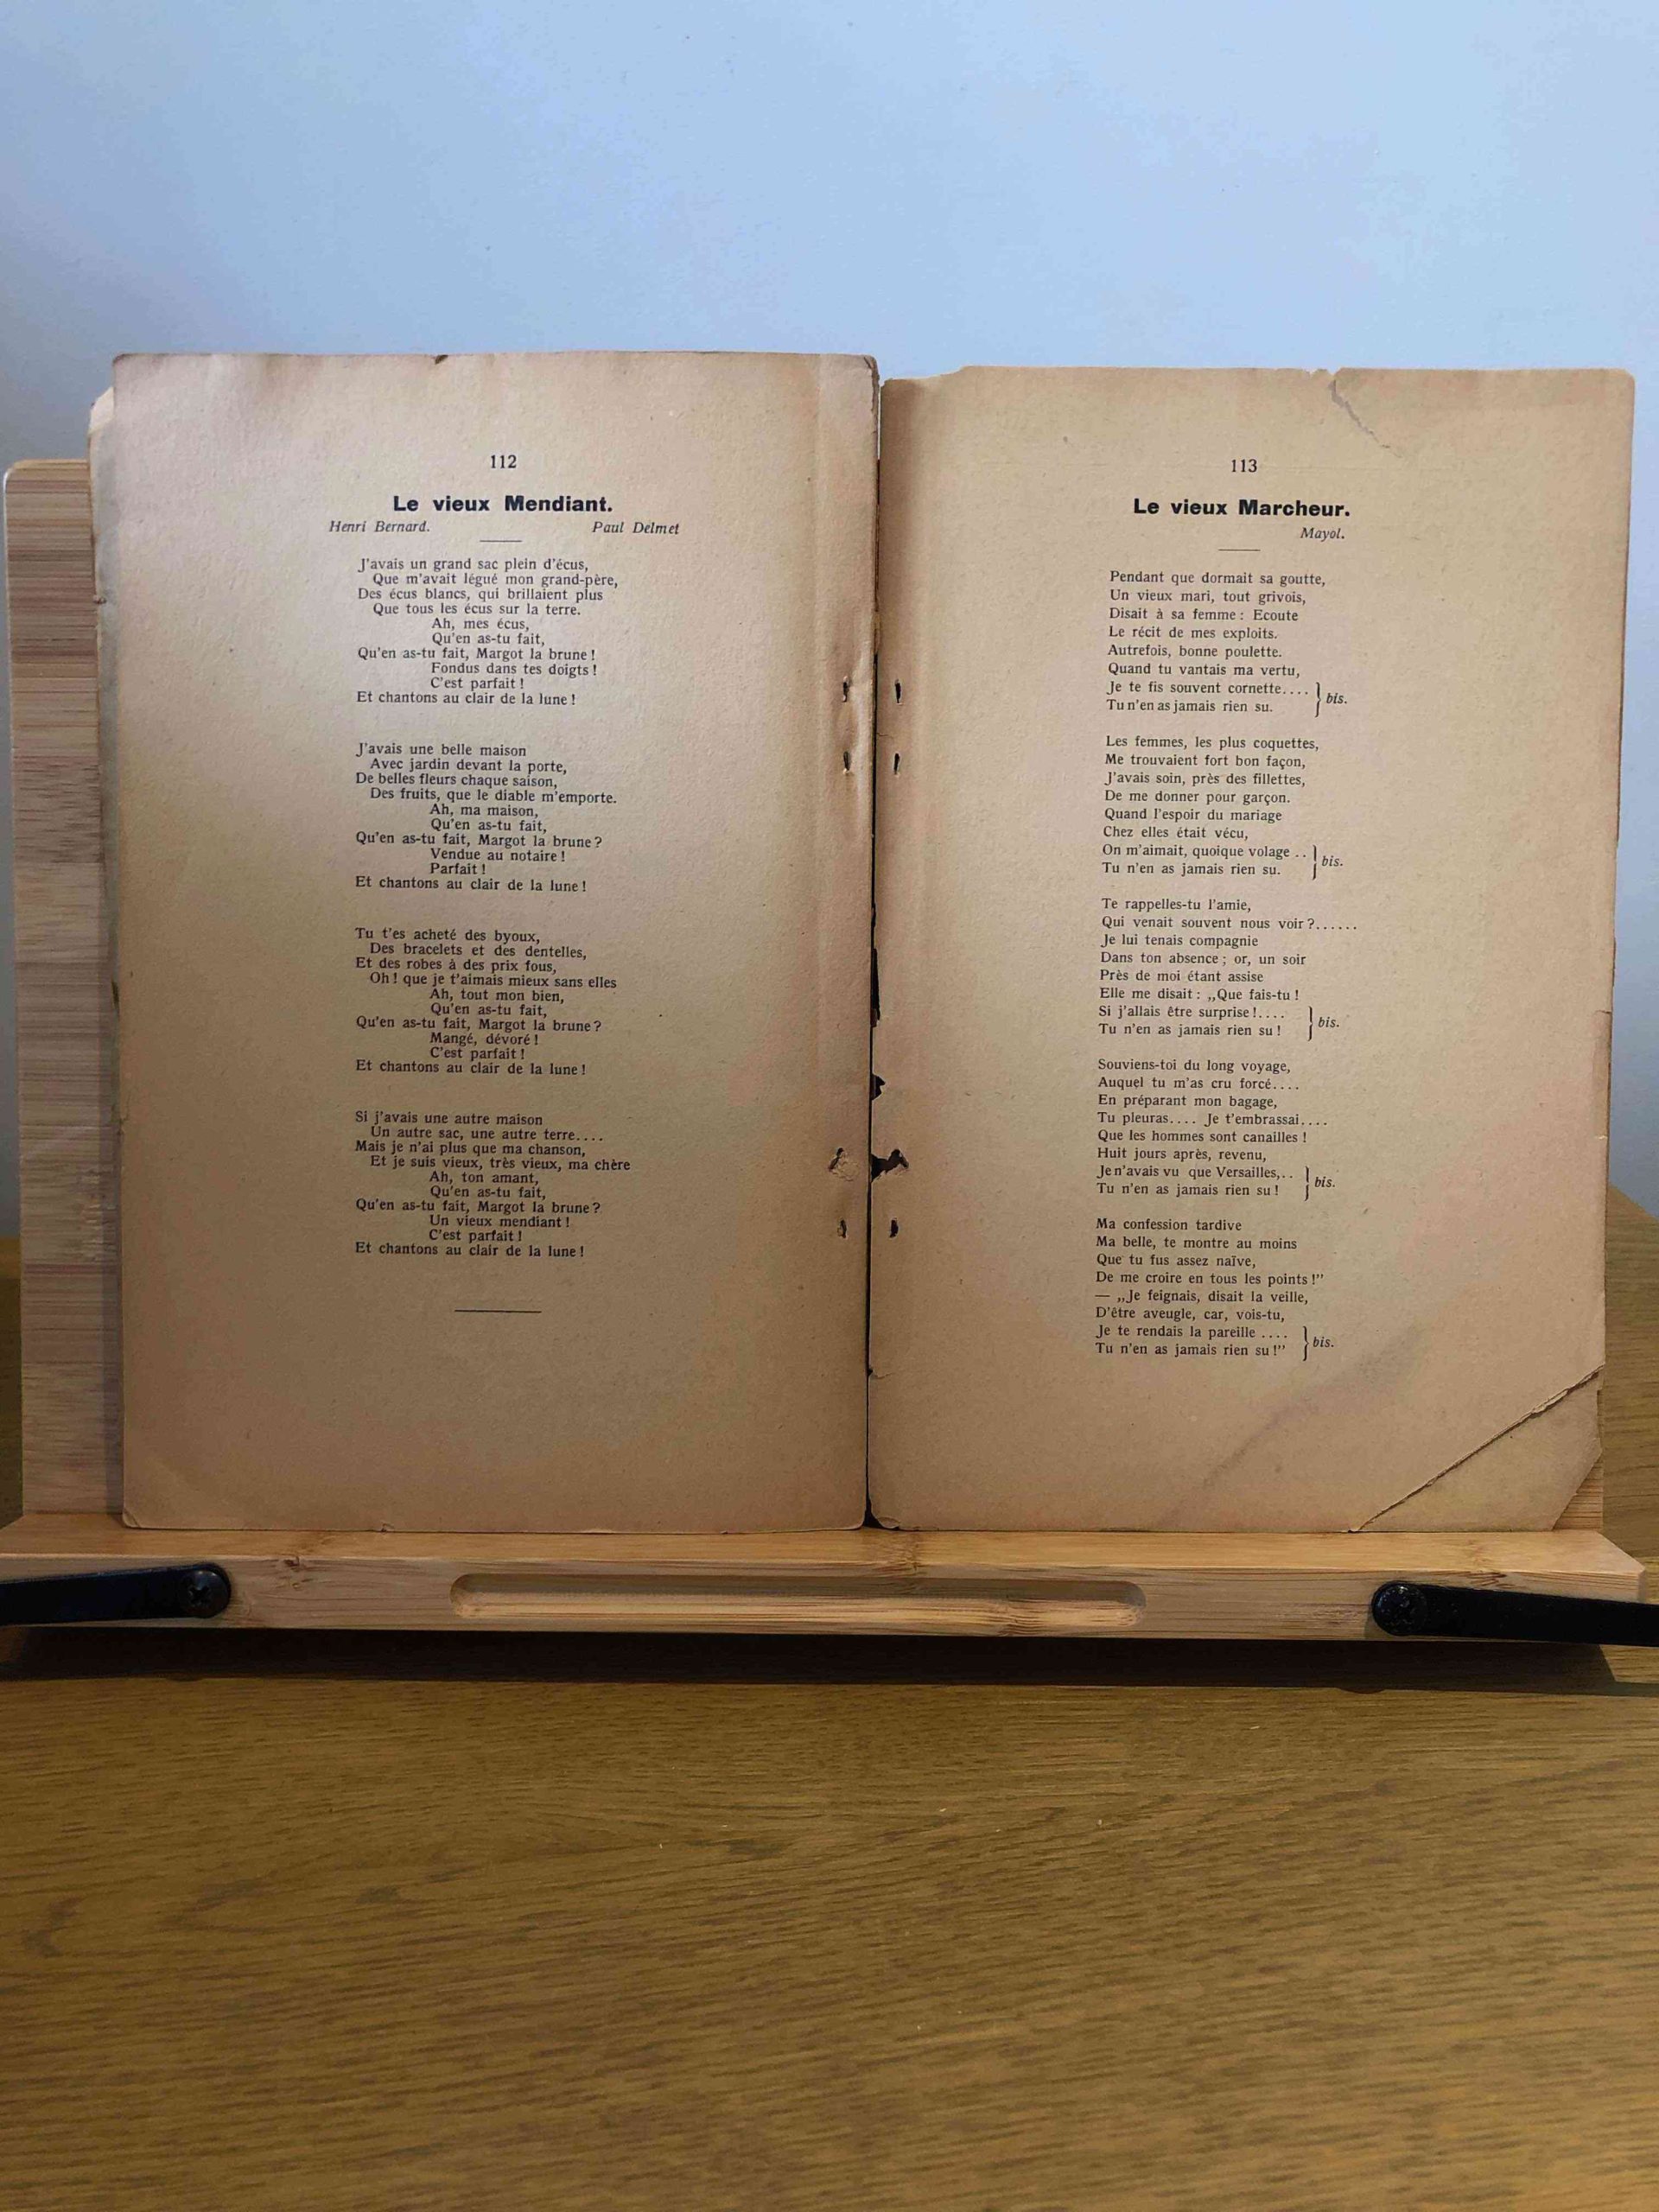 112
Le vieux Mendiant.
Henri Bernard. Paul Delmet
J'avais un grand sac plein d'écus,
Que m'avait légué mon grand-père,
Des écus blancs, qui brillaient plus
Que tous les écus sur la terre.
Ah, mes écus,
Qu'en as-tu fait,
Qu'en as-tu fait, Margot la brune !
Fondus dans tes doigts !
C'est parfait !
Et chantons au clair de la lune !
J'avais une belle maison
Avec jardin devant la porte,
De belles fleurs chaque saison,
Des fruits, que le diable m'emporte.
Ah, ma maison,
Qu'en as-tu fait,
Qu'en as-tu fait, Margot la brune ?
Vendue au notaire !
Parfait !
Et chantons au clair de la lune !
Tu t'es acheté des byoux,
Des bracelets et des dentelles,
Et des robes à des prix fous,
Oh ! que je t'aimais mieux sans elles
Ah, tout mon bien,
Qu'en as-tu fait,
Qu'en as-tu fait, Margot la brune ?
Mangé, dévoré !
C'est parfait !
Et chantons au clair de la lune !
Si j'avais une autre maison
Un autre sac, une autre terre....
Mais je n'ai plus que ma chanson,
Et je suis vieux, très vieux, ma chère
Ah, ton amant,
Qu'en as-tu fait,
Qu'en as-tu fait, Margot la brune ?
Un vieux mendiant !
C'est parfait !
Et chantons au clair de la lune !
113
Le vieux Marcheur.
Mayol.
Pendant que dormait sa goutte,
Un vieux mari, tout grivois,
Disait à sa femme : Ecoute
Le récit de mes exploits.
Autrefois, bonne poulette.
Quand tu vantais ma vertu,
Je te fis souvent cornette.... } bis.
Tu n'en as jamais rien su.
Les femmes, les plus coquettes,
Me trouvaient fort bon façon,
J'avais soin, près des fillettes,
De me donner pour garçon.
Quand l'espoir du mariage
Chez elles était vécu,
On m'aimait, quoique volage .. } bis.
Tu n'en as jamais rien su.
Te rappelles-tu l'amie,
Qui venait souvent nous voir ?......
Je lui tenais compagnie
Dans ton absence ; or, un soir
Près de moi étant assise
Elle me disait : „Que fais-tu !
Si j'allais être surprise !.... } bis.
Tu n'en as jamais rien su !
Souviens-toi du long voyage,
Auquel tu m'as cru forcé....
En préparant mon bagage,
Tu pleuras.... Je t'embrassai....
Que les hommes sont canailles !
Huit jours après, revenu,
Je n'avais vu que Versailles,.. } bis.
Tu n'en as jamais rien su !
Ma confession tardive
Ma belle, te montre au moins
Que tu fus assez naïve,
De me croire en tous les points !”
— „Je feignais, disait la veille,
D'être aveugle, car, vois-tu,
Je te rendais la pareille .... } bis.
Tu n'en as jamais rien su !”